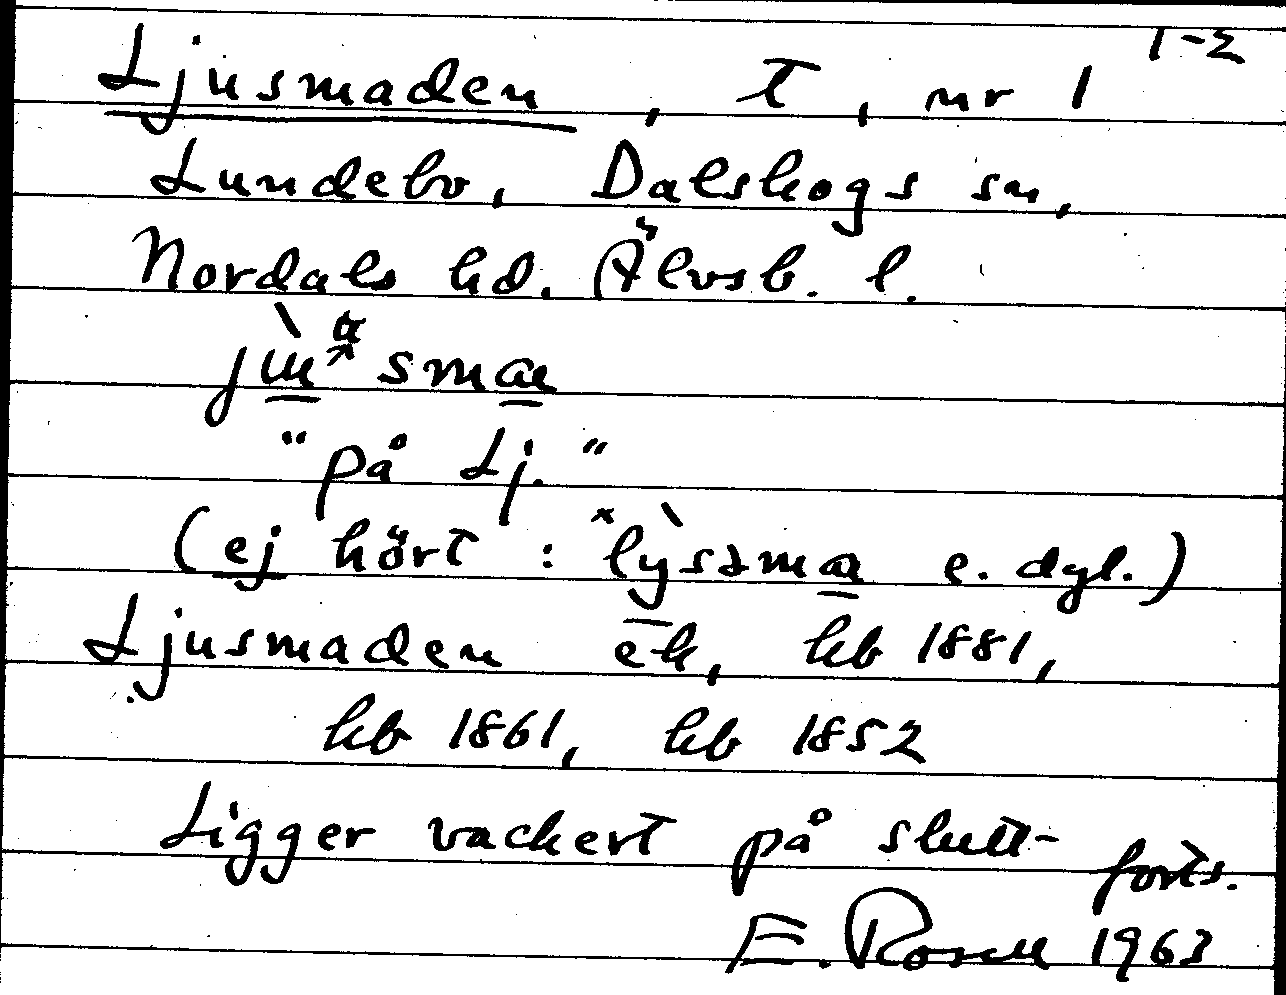 1-2
Ljusmaden, t, nr 1
Lundebo, Dalskogs sn,
Nordals hd. Älvsb. l.
"på Lj."
(ej hört : e. dyl.)
Ljusmaden ek, hb 1881,
hb 1861, hb 1852
Ligger vackert på slutt- forts.
E. Rosell 1963